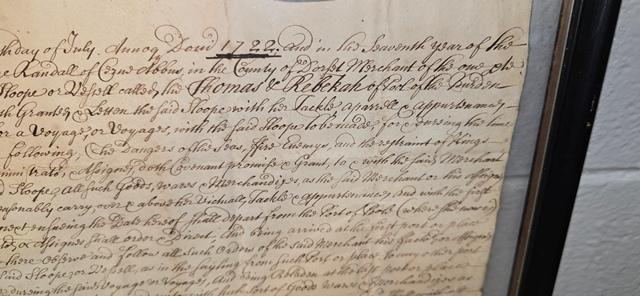 day of July Annoq Domi 1722. and in the Seaventh Year of the
Randall of Cerne Abbas, in the County of Dorset Merchant of the one pte
Sloope or Vessell called, the Thomas & Rebekah of Pool of the Burden
Granted & Letten the said Sloope with her Tackle aparrell & appurtenances
or a Voyage or Voyages, with the said Sloope to be made, for & dureing the time
following, (The Dangers of the seas, fire Enemys, and the restraint of Kings
Assignes, doth Covenant promise & Grant, to & with the said Merchant
Sloope, all such Goods, wares & Merchandizes, as the said Merchant or his Assignes
reasonably carry, over & above her Victuals, Tackle & appurtenances, And with the first
next ensueing the Date hereof shall depart from the Port of Poole (where she now is)
or Assignes shall order & Direct. And being arrived at the first port or place
there observe and follow all such Orders of the said Merchant his Factors or Assignes
said Sloope or Vessell, as in the sayling from such Port or place to any other port
dureing the said Voyage or Voyages, And being
such Port of Goods Wares & Merchandizes as